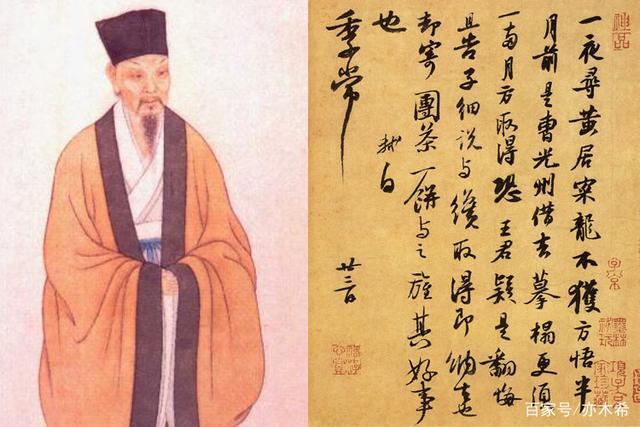 一夜尋黃居寀龍不獲方悟半
月前是曹光州借去摹搨更須
一兩月方取得恐王君疑是翻悔
且告子細說与纔取得即納去
却寄團茶一餅与之旌其好事
也
軾白
季常
廿三日
百家号/亦木希